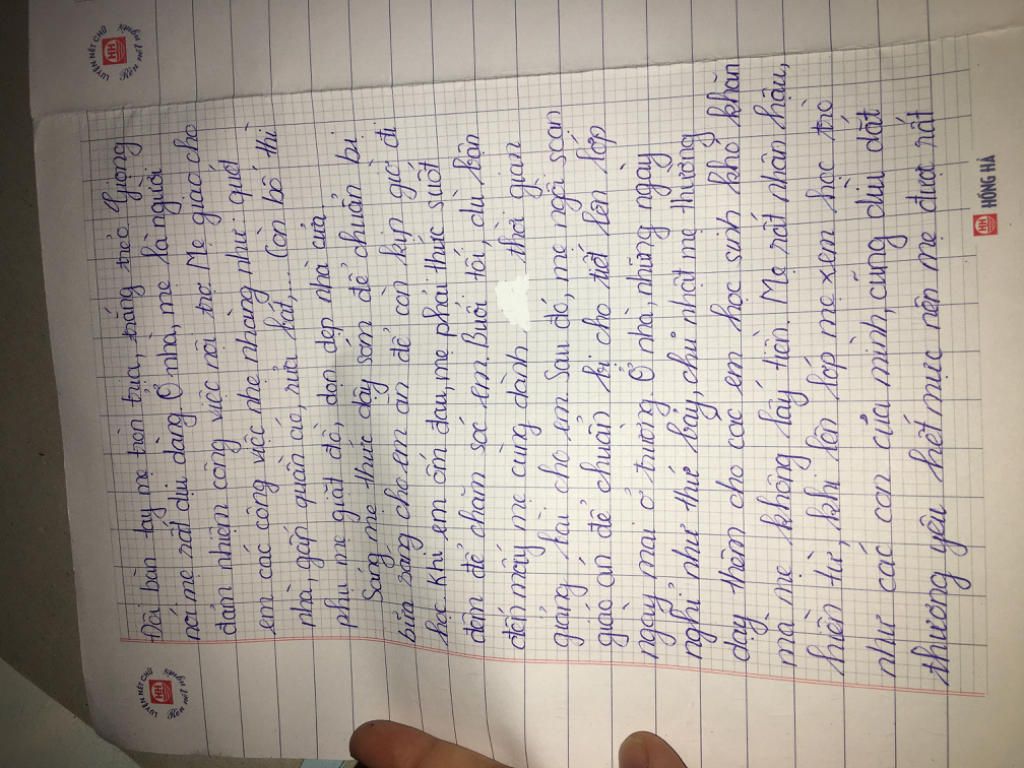 LUYỆN NÉT CHỮ
Rèn nết người
HH
LUYỆN NÉT CHỮ
Rèn nết người
HH
Đôi bàn tay mẹ tròn trịa, trắng trẻo. Giọng
nói mẹ rất dịu dàng. Ở nhà, mẹ là người
đảm nhiệm công việc nội trợ. Mẹ giao cho
em các công việc nhẹ nhàng như quét
nhà, gấp quần áo, rửa bát,... Còn bố thì
phụ mẹ giặt đồ, dọn dẹp nhà cửa.
Sáng mẹ thức dậy sớm để chuẩn bị
bữa sáng cho em ăn để còn kịp giờ đi
học. Khi em ốm đau, mẹ phải thức suốt
đêm để chăm sóc em. Buổi tối, dù bận
đến mấy mẹ cũng dành thời gian
giảng bài cho em. Sau đó, mẹ ngồi soạn
giáo án để chuẩn bị cho tiết lên lớp
ngày mai ở trường. Ở nhà, những ngày
nghỉ như thứ bảy, chủ nhật mẹ thường
dạy thêm cho các em học sinh khó khăn
mà mẹ không lấy tiền. Mẹ rất nhân hậu,
hiền từ, khi lên lớp mẹ xem học trò
như các con của mình, cũng dìu dắt
thương yêu hết mực nên mẹ được rất
HH HỒNG HÀ